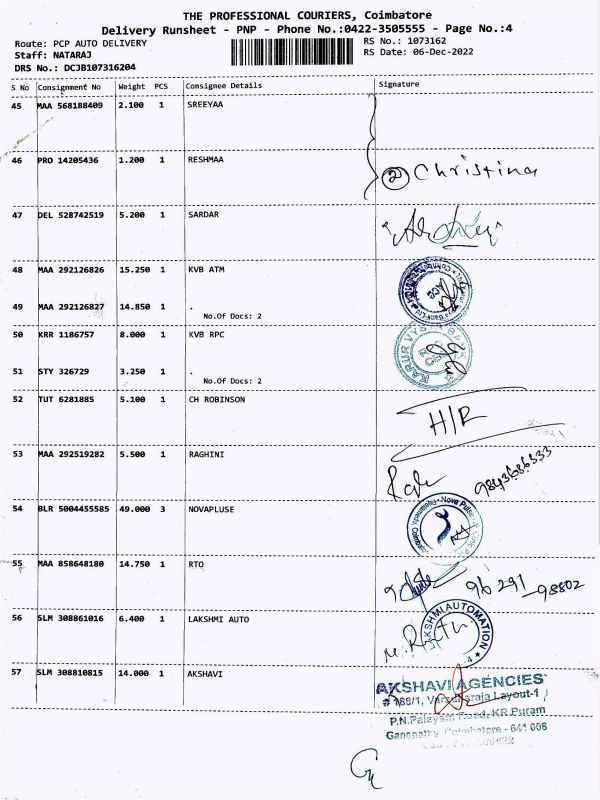 THE PROFESSIONAL COURIERS, Coimbatore
Delivery Runsheet - PNP - Phone No.:0422-3505555 - Page No.:4
Route: PCP AUTO DELIVERY
Staff: NATARAJ
DRS No.: DCJB107316204
RS No.: 1073162
RS Date: 06-Dec-2022
S No Consignment No Weight PCS Consignee Details Signature
45 MAA 568188409 2.100 1 SREEYAA
46 PRO 14205436 1.200 1 RESHMAA
② Christina
47 DEL 528742519 5.200 1 SARDAR
48 MAA 292126826 15.250 1 KVB ATM
49 MAA 292126827 14.850 1 .
No.Of Docs: 2
50 KRR 1186757 8.000 1 KVB RPC
KARUR VYSYA BANK
51 STY 326729 3.250 1 .
No.Of Docs: 2
52 TUT 6281885 5.100 1 CH ROBINSON
H/R
53 MAA 292519282 5.500 1 RAGHINI
54 BLR 5004455585 49.000 3 NOVAPLUSE
Nova Pulse
55 MAA 858648180 14.750 1 RTO
96 291 - 98802
56 SLM 308861016 6.400 1 LAKSHMI AUTO
LAKSHMI AUTOMATION
57 SLM 308810815 14.000 1 AKSHAVI
AKSHAVI AGENCIES
Layout-1
P.N.Palayam Road, KR Puram
Ganapathy, Coimbatore - 641 006